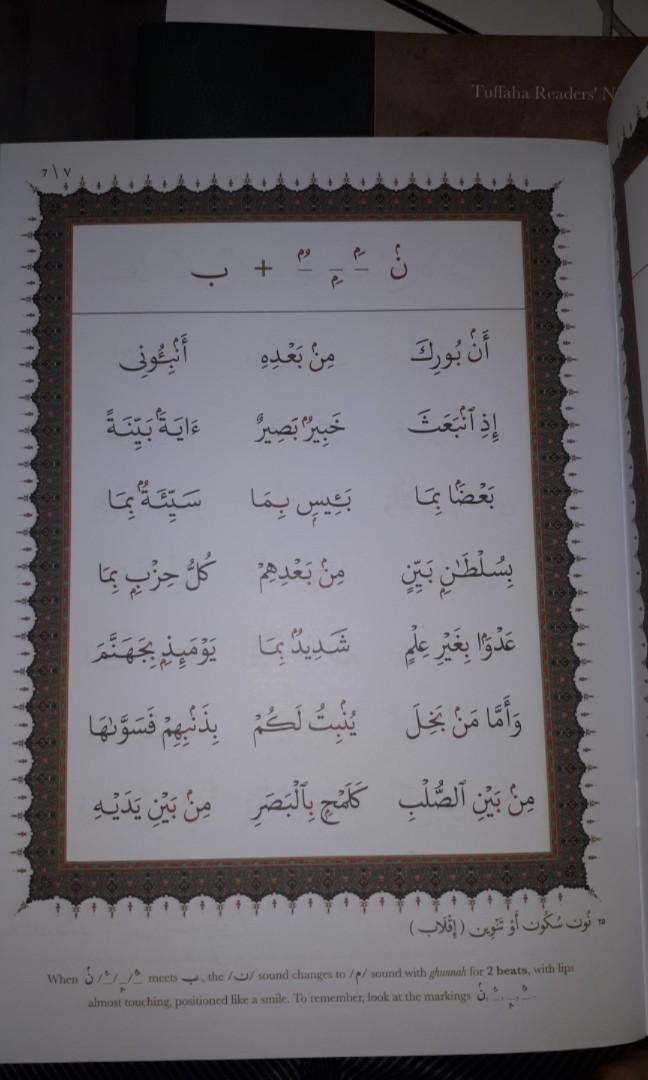 Tuffaha Readers'
٧ \ 7
نۢ ـًۢ ـٍۢ ـٌۢ + ب
أَنۢ بُورِكَ مِنۢ بَعْدِهِ أَنۢبِـُٔونِى
إِذِ ٱنۢبَعَثَ خَبِيرٌۢ بَصِيرٌ ءَايَةَۢ بَيِّنَةً
بَعْضَۢا بِمَا بَـِٔيسِۭ بِمَا سَيِّئَةٌۢ بِمَا
بِسُلْطَـٰنِۭ بَيِّنٍ مِنۢ بَعْدِهِمْ كُلُّ حِزْبِۭ بِمَا
عَدْوَۢا بِغَيْرِ عِلْمٍ شَدِيدُۢ بِمَا يَوْمَئِذِۭ بِجَهَنَّمَ
وَأَمَّا مَنۢ بَخِلَ يُنۢبِتُ لَكُمْ بِذَنۢبِهِمْ فَسَوَّىٰهَا
مِنۢ بَيْنِ ٱلصُّلْبِ كَلَمْحِۭ بِٱلْبَصَرِ مِنۢ بَيْنِ يَدَيْهِ
٢٥ نُون سُكُون أَوْ تَنْوِين (إِقْلَاب)
When نْ /ـً/ـٍ/ـٌ meets ب, the /ن/ sound changes to /م/ sound with ghunnah for 2 beats, with lips
almost touching, positioned like a smile. To remember, look at the markings نۢ, ـًۢ, ـٍۢ, ـٌۢ.